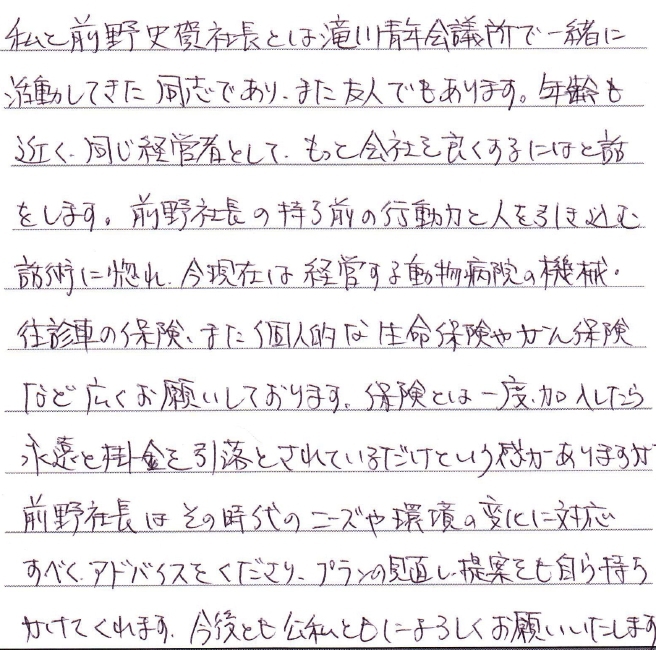 私と前野史賀社長とは滝川青年会議所で一緒に
活動してきた同志であり、また友人でもあります。年齢も
近く、同じ経営者として、もっと会社を良くするにはと話
をします。前野社長の持ち前の行動力と人を引き込む
話術に惚れ、今現在は経営する動物病院の機械・
往診車の保険、また個人的な生命保険やがん保険
など広くお願いしております。保険とは一度、加入したら
永遠と掛金を引落とされているだけという感がありますが
前野社長はその時代のニーズや環境の変化に対応
すべく、アドバイスをくださり、プランの見直し、提案をも自ら持ち
かけてくれます。今後とも公私ともによろしくお願いいたします